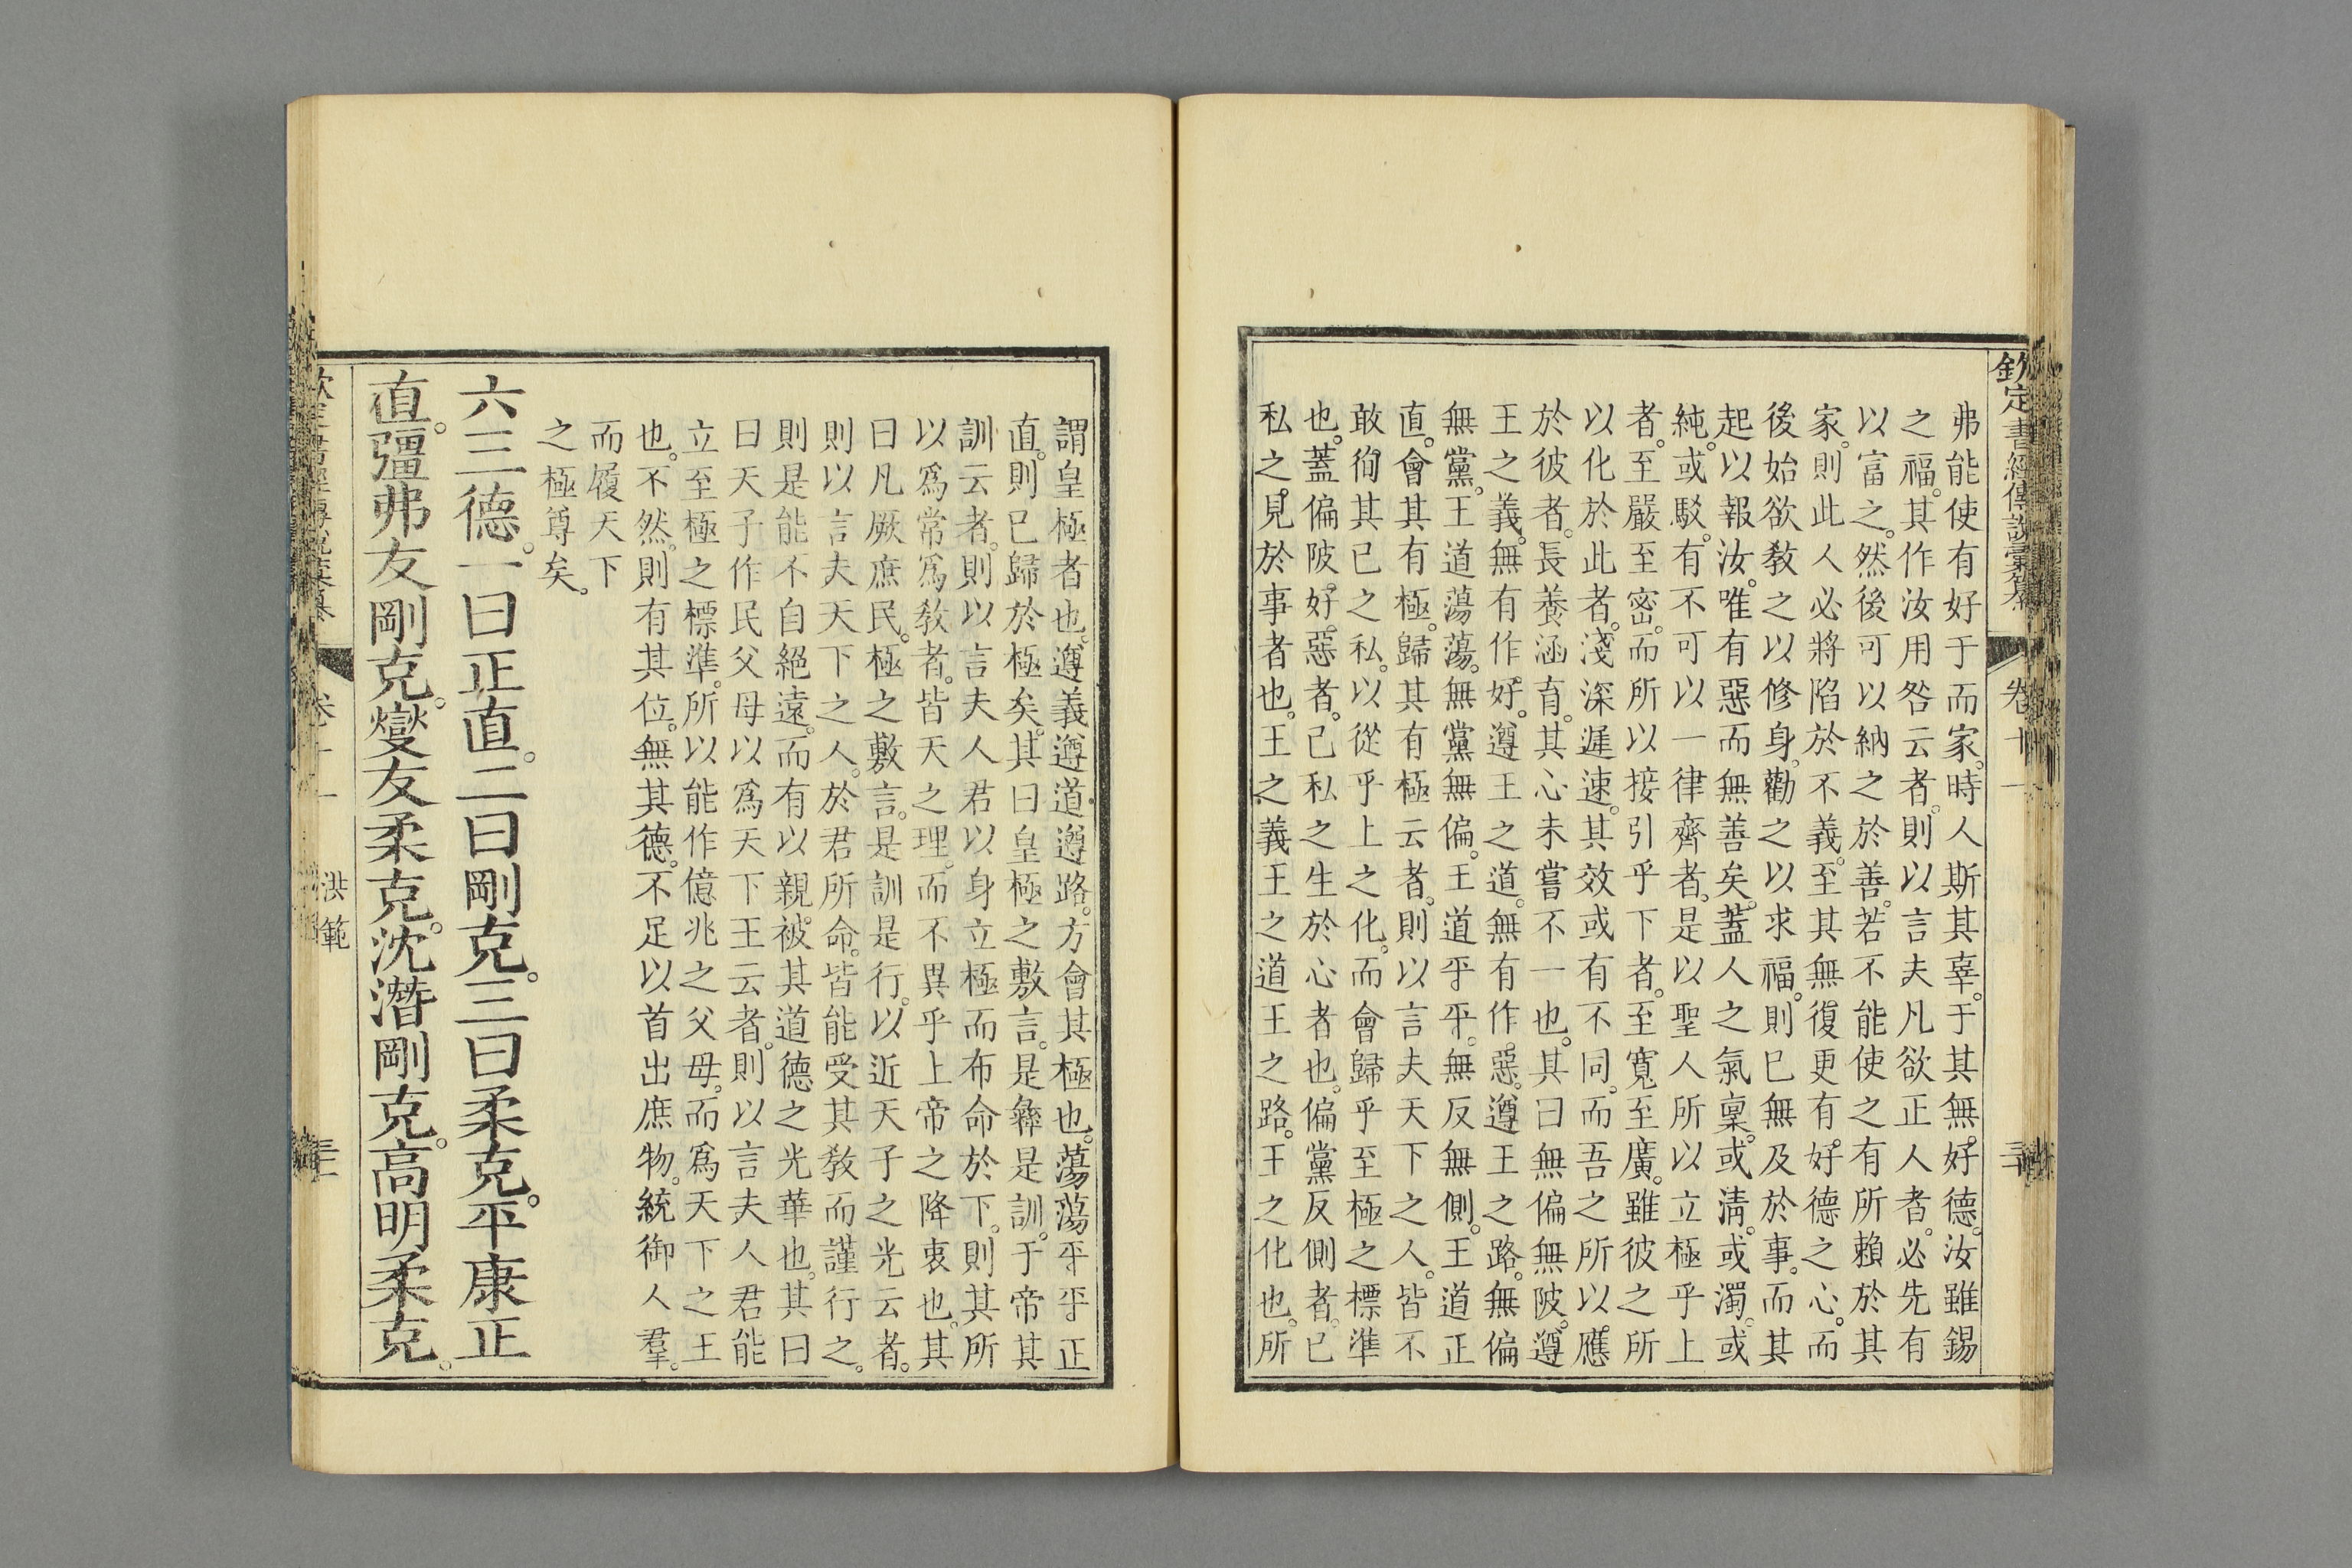 欽定書經傳說彙纂
卷十一
弗能使有好于而家。時人斯其辜。于其無好德。汝雖錫
之福。其作汝用咎云者。則以言夫凡欲正人者。必先有
以富之。然後可以納之於善。若不能使之有所賴於其
家。則此人必將陷於不義。至其無復更有好德之心。而
後始欲教之以修身。勸之以求福。則已無及於事。而其
起以報汝。唯有惡而無善矣。蓋人之氣稟。或淸。或濁。或
純。或駁。有不可以一律齊者。是以聖人所以立極乎上
者。至嚴至密。而所以接引乎下者。至寬至廣。雖彼之所
以化於此者。淺深遲速。其效或有不同。而吾之所以應
於彼者。長養涵育。其心未嘗不一也。其曰無偏無陂。遵
王之義。無有作好。遵王之道。無有作惡。遵王之路。無偏
無黨。王道蕩蕩。無黨無偏。王道平平。無反無側。王道正
直。會其有極。歸其有極云者。則以言夫天下之人。皆不
敢徇其已之私。以從乎上之化。而會歸乎至極之標準
也。蓋偏陂。好惡者。己私之生於心者也。偏黨反側者。已
私之見於事者也。王之義王之道王之路。王之化也。所
謂皇極者也。遵義遵道遵路。方會其極也。蕩蕩平平正
直。則已歸於極矣。其曰皇極之敷言。是彝是訓。于帝其
訓云者。則以言夫人君以身立極而布命於下。則其所
以爲常爲敎者。皆天之理。而不異乎上帝之降衷也。其
曰凡厥庶民。極之敷言。是訓是行。以近天子之光云者。
則以言夫天下之人。於君所命。皆能受其敎而謹行之。
則是能不自絕遠。而有以親被其道德之光華也。其曰
曰天子作民父母以爲天下王云者。則以言夫人君能
立至極之標準。所以能作億兆之父母。而爲天下之王
也。不然。則有其位。無其德。不足以首出庶物。統御人羣。
而履天下
之極尊矣。
六三德。一曰正直。二曰剛克。三曰柔克。平康正
直。彊弗友剛克。燮友柔克。沈潛剛克。高明柔克。
卷十一
洪範